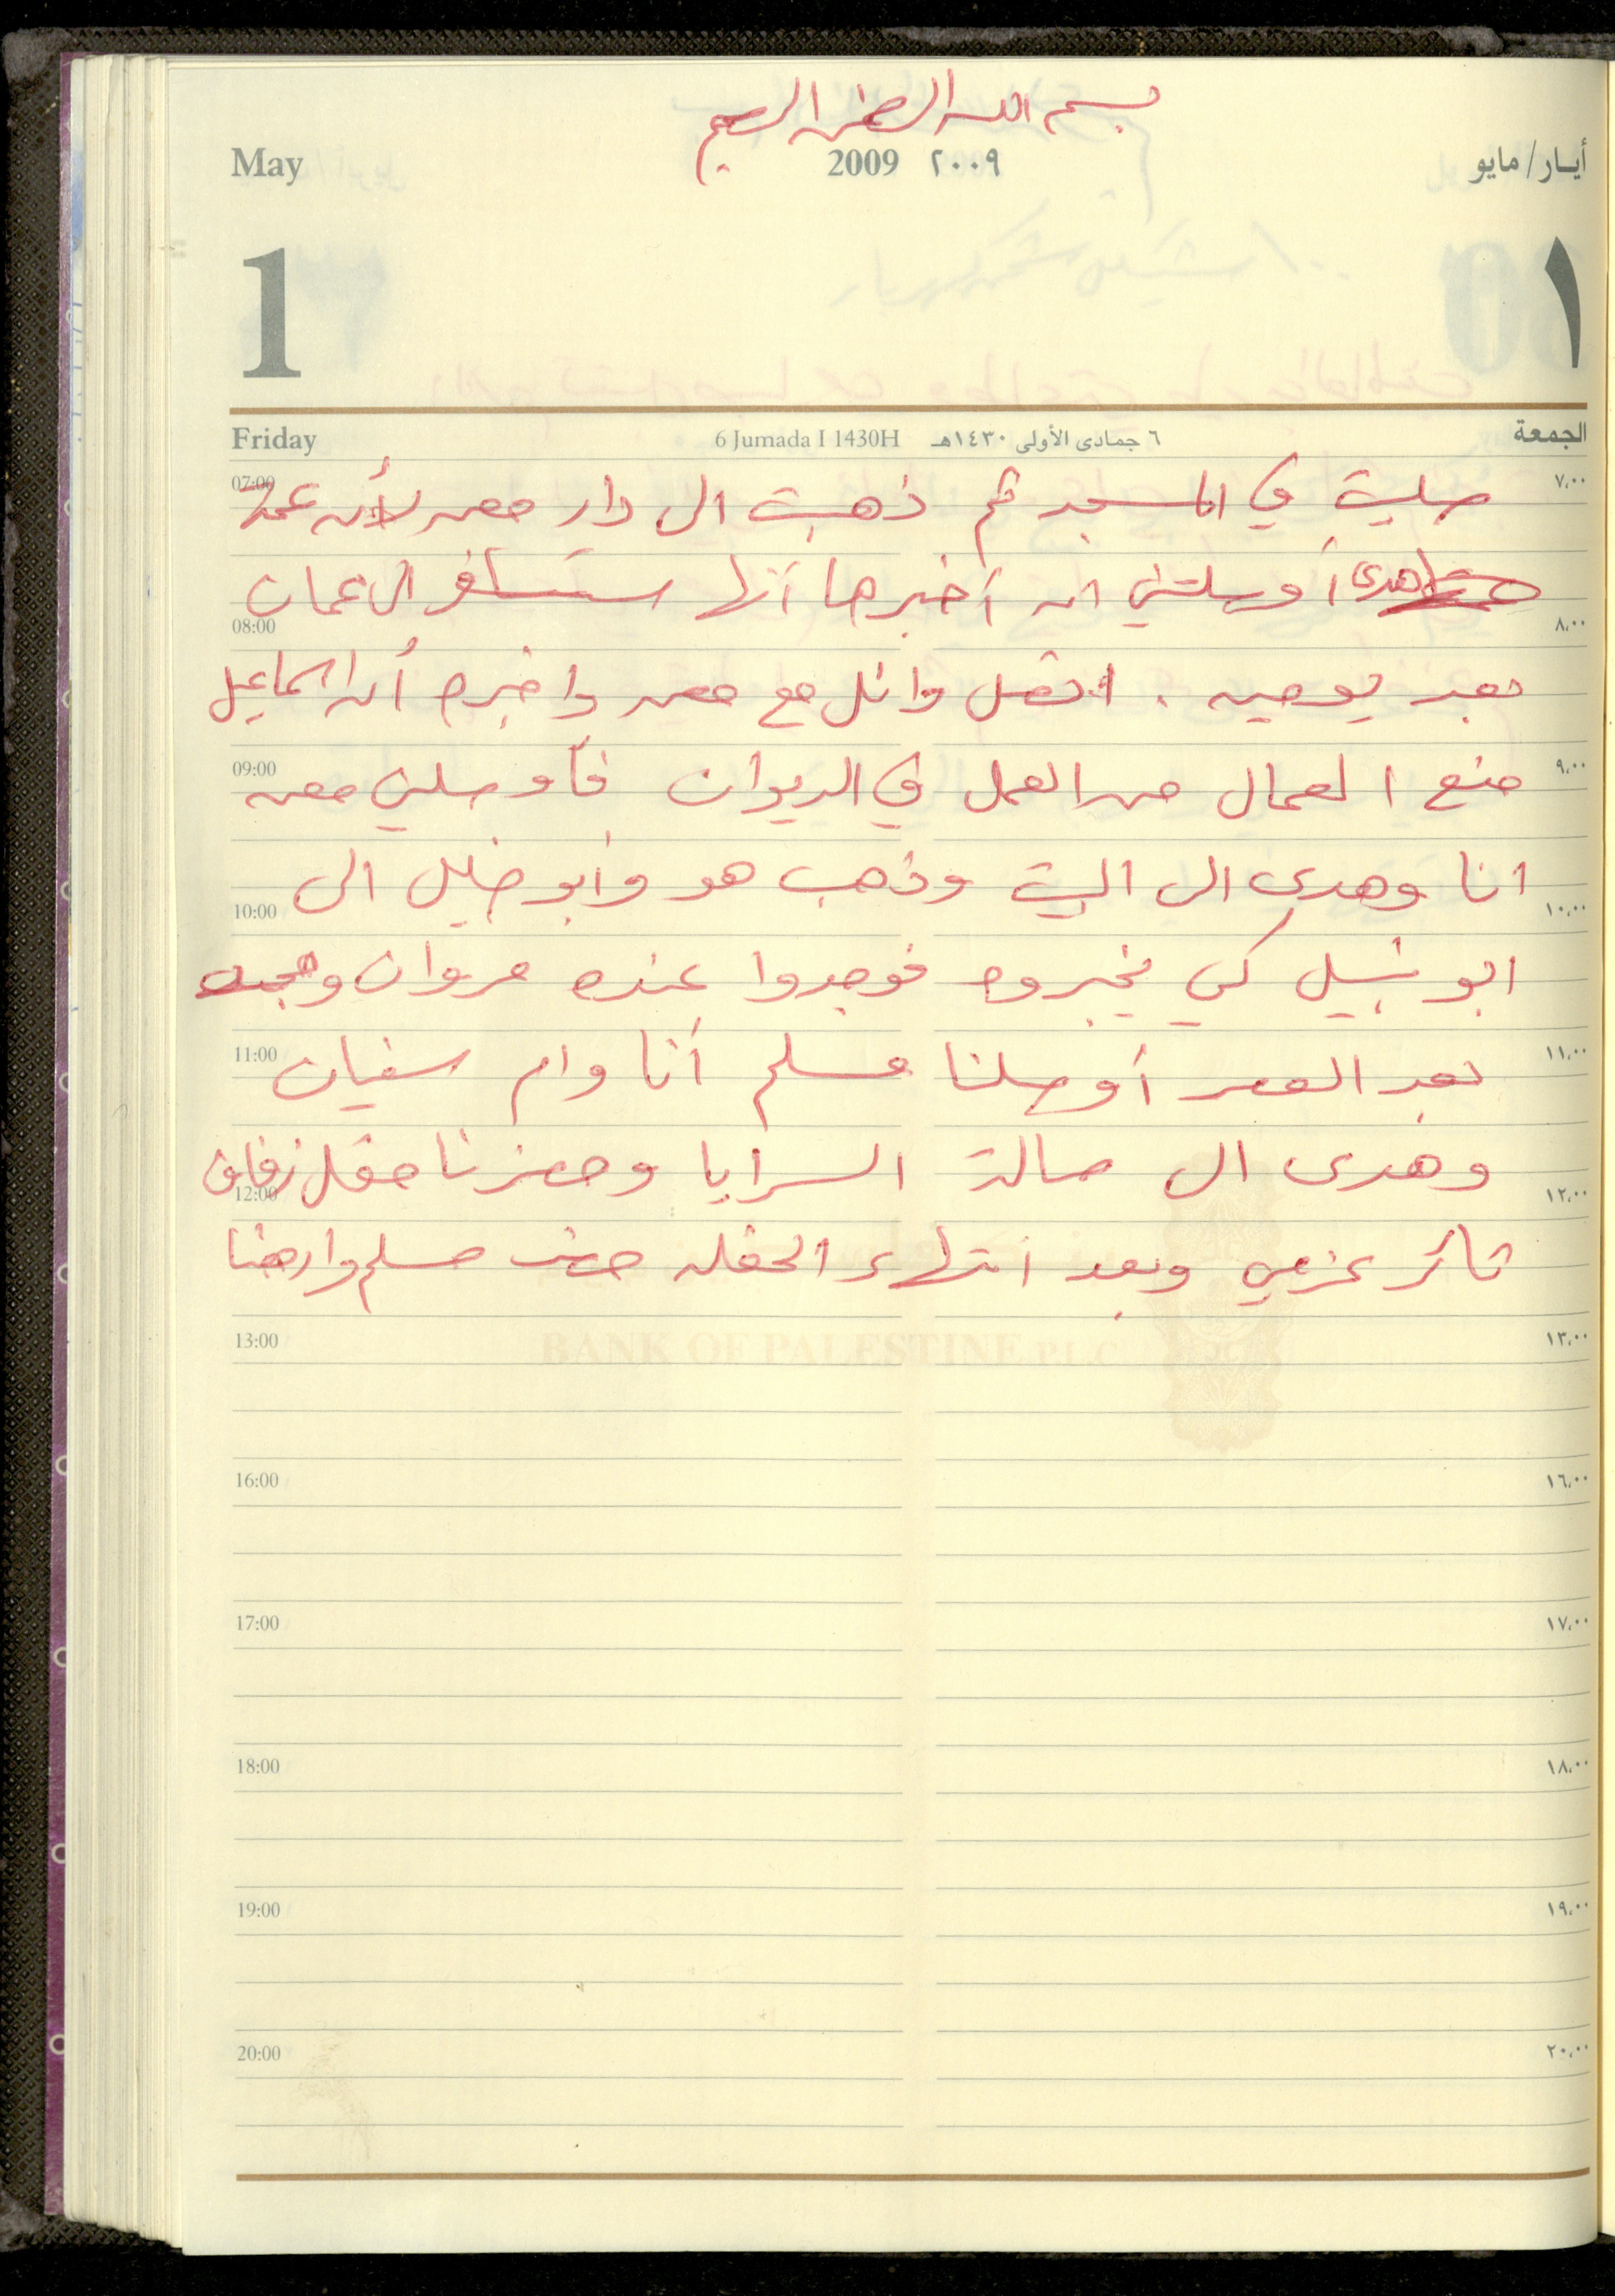 بسم الله الرحمن الرحيم
May 2009 ٢٠٠٩ أيـار/ مايو
1 ١
Friday 6 Jumada I 1430H ٦ جمادى الأولى ١٤٣٠هـ الجمعة
07:00 ٧,٠٠
صليت في المسجد ثم ذهبت الى دار معن لأن عمته
هدى أوصلتني ان أخبرها أنها ستسافر الى عمان
08:00 ٨,٠٠
بعد يومين . اتصل وائل مع معن واخبره أن اسماعيل
09:00 ٩,٠٠
منع العمال من العمل في الديوان فأوصلني معن
انا وهدى الى البيت وذهب هو وابو خليل الى
10:00 ١٠,٠٠
ابو نبيل كي يخبروه فوجدوا عنده مروان
11:00 ١١,٠٠
بعد العصر أوصلنا مسلم أنا وام سفيان
وهدى الى صالة السرايا وحضرنا حفل زفاف
12:00 ١٢,٠٠
ثائر عزمي وبعد انتهاء الحفله مسلم
13:00 ١٣,٠٠
BANK OF PALESTINE P.L.C
16:00 ١٦,٠٠
17:00 ١٧,٠٠
18:00 ١٨,٠٠
19:00 ١٩,٠٠
20:00 ٢٠,٠٠